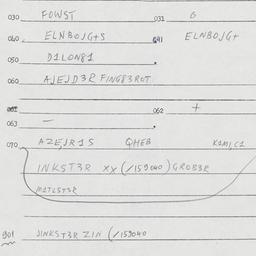 030 FOWST 031 G
040 ELNBOJG+S 041 ELNBOJG+
050 D1LON81
060 AJEJD3R FING83ROT
062 +
063 —
070 AZEJR1S QHEB K1MI,C1
INKST3R XX (/159040) GROB3R
M1TLST3R
801 JINKST3R ZIN (/159040